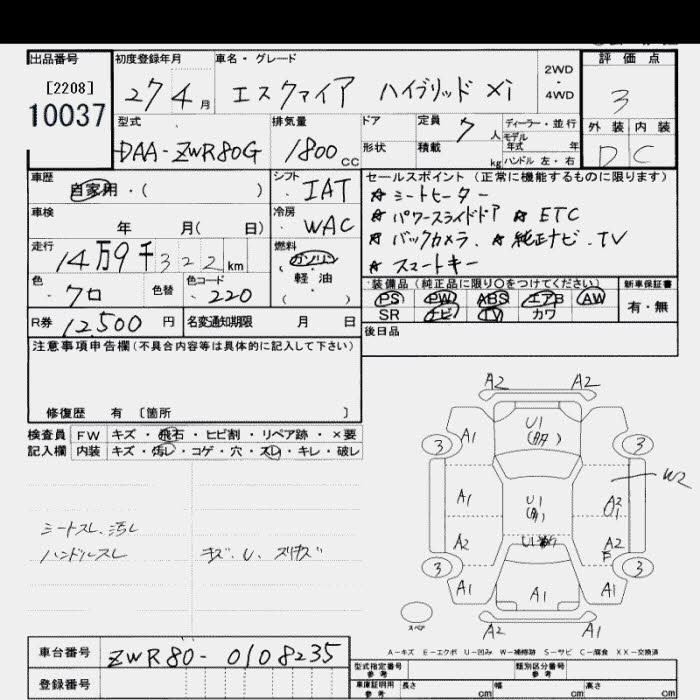 出品番号
[2208]
10037
初度登録年月
27 4 月
車名・グレード
エスクァイア ハイブリッド Xi
2WD
・
4WD
評価点
3
外装 内装
D C
型式
DAA-ZWR80G
排気量
1800 cc
ドア
形状
定員 7 人
積載 kg
ディーラー・並行
モデル
年式 年
ハンドル 左・右
車歴
自家用・( )
シフト
IAT
車検
年 月( 日)
冷房
WAC
走行
14万9千322 km
燃料
ガソリン
軽・油
( )
色
クロ
色替
色コード
220
R券 12500 円
名変通知期限 月 日
セールスポイント (正常に機能するものに限ります)
☆ シートヒーター
☆ パワースライドドア ☆ ETC
☆ バックカメラ、☆ 純正ナビ・TV
☆ スマートキー
装備品 (純正品に限り○をつけてください)
PS PW ABS エアB AW
SR ナビ TV カワ
新車保証書
有・無
後日品
注意事項申告欄 (不具合内容等は具体的に記入して下さい)
修復歴 有 〔箇所 〕
検査員
記入欄
FW キズ・飛石・ヒビ割・リペア跡・×要
内装 キズ・汚レ・コゲ・穴・スレ・キレ・破レ
シートスレ、汚レ
ハンドルスレ
キズ、U、スリキズ
A2 A2
U1
3 A1 A1 3
W2
A1 U1 A2
U1
A2 A2
3 3
A1 A1 A1
スペア
A2 A1
A－キズ E－エクボ U－凹み W－補修跡 S－サビ C－腐食 XX－交換済
車台番号 ZWR80-0108235
登録番号
型式指定番号
参考
類別区分番号
参考
車庫証明用
参考
長さ cm 幅 cm 高さ cm